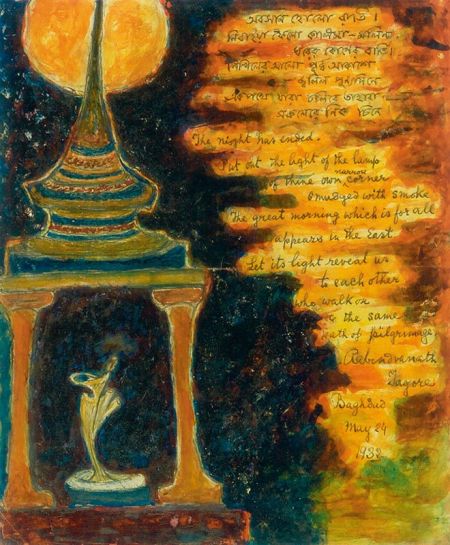 অবসান হোলো রাতি।
নিবাইয়া ফেলো কালিমা-মলিন
ঘরের কোণের বাতি।
নিখিলের আলো পূর্ব্ব আকাশে
জ্বলিল পুণ্যদিনে
একপথে যারা চলিবে তাহারা
সকলেরে নিক্ চিনে
The night has ended.
Put out the light of the lamp
of thine own narrow corner
smudged with smoke
The great morning which is for all
appears in the East
Let its light reveal us
to each other
who walk on
to the same
path of pilgrimage
Rabindranath
Tagore
Baghdad
May 24
1932